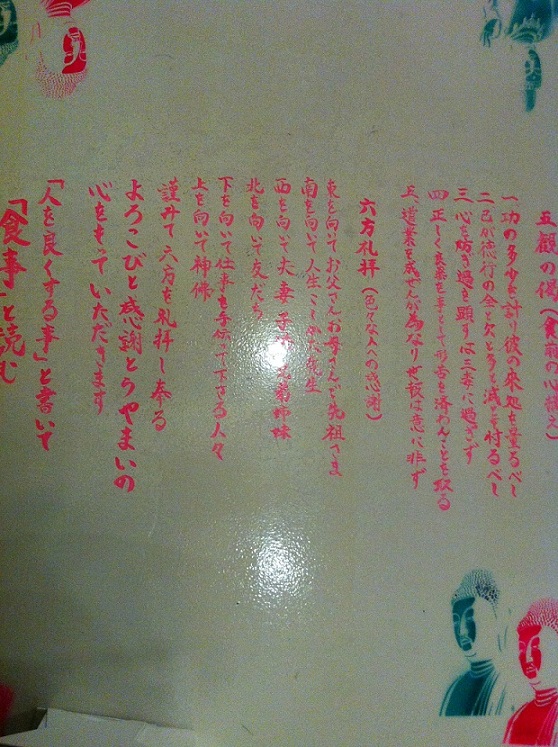 五観の偈(食前の心構え)
一、功の多少を計り彼の来処を量るべし
二、己が徳行の全と欠と多と減とを忖るべし
三、心を防ぎ過を顕すは三毒に過ぎず
四、正しく良薬を事として形古を済わんことを取る
五、道業を成ぜんが為なり世報は意に非ず
六方礼拝(色々な人への感謝)
東を向いてお父さんお母さんご先祖さま
南を向いて人生 先生
西を向いて夫妻 子供 兄弟姉妹
北を向いて友だち
下を向いて仕事を手伝って下さる人々
上を向いて神佛
謹みて六方を礼拝し奉る
よろこびと感謝とうやまいの
心をもっていただきます
「人を良くする事」と書いて
「食事」と読む